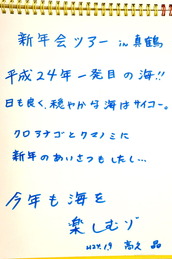 新年会ツアー in 真鶴
平成24年一発目の海!!
日も良く、穏やかな海はサイコー。
クロアナゴとクマノミに
新年のあいさつもしたし…
今年も海を
楽しむゾ
H24.1.9